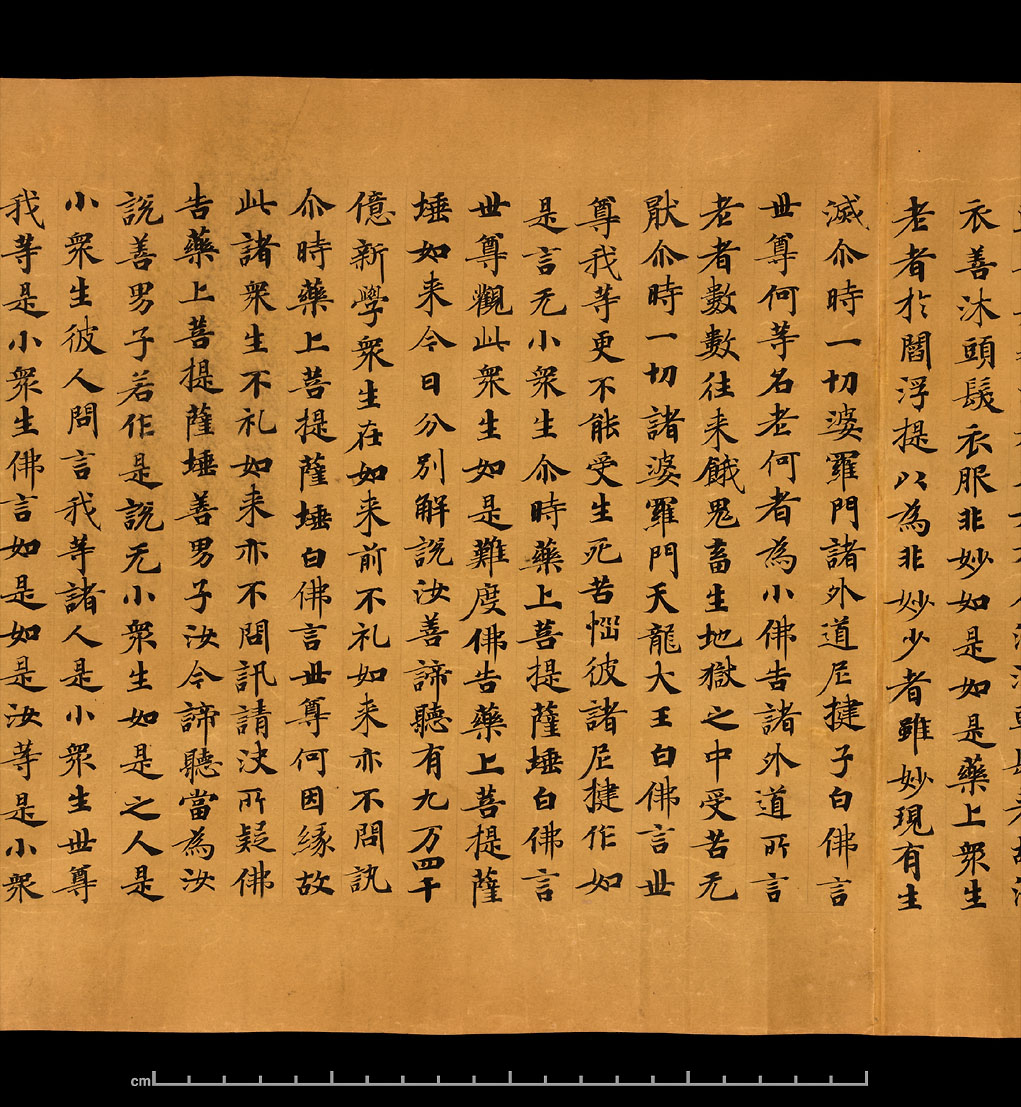 衣善沐頭髮衣服非妙如是如是藥上眾生
老者於閻浮提以為非妙少者雖妙現有生
滅尒時一切婆羅門諸外道尼揵子白佛言
世尊何等名老何者為小佛告諸外道所言
老者數數往来餓鬼畜生地獄之中受苦无
猒尒時一切諸婆羅門天龍大王白佛言世
尊我等更不能受生死苦惱彼諸尼揵作如
是言无小衆生尒時藥上菩提薩埵白佛言
世尊觀此衆生如是難度佛告藥上菩提薩
埵如来今日分別解說汝善諦聽有九万四千
億新學衆生在如来前不礼如来亦不問訊
尒時藥上菩提薩埵白佛言世尊何因緣故
此諸衆生不礼如来亦不問訊請決所疑佛
告藥上菩提薩埵善男子汝今諦聽當為汝
說善男子若作是說无小衆生如是之人是
小衆生彼人問言我等諸人是小衆生世尊
我等是小衆生佛言如是如是汝等是小衆